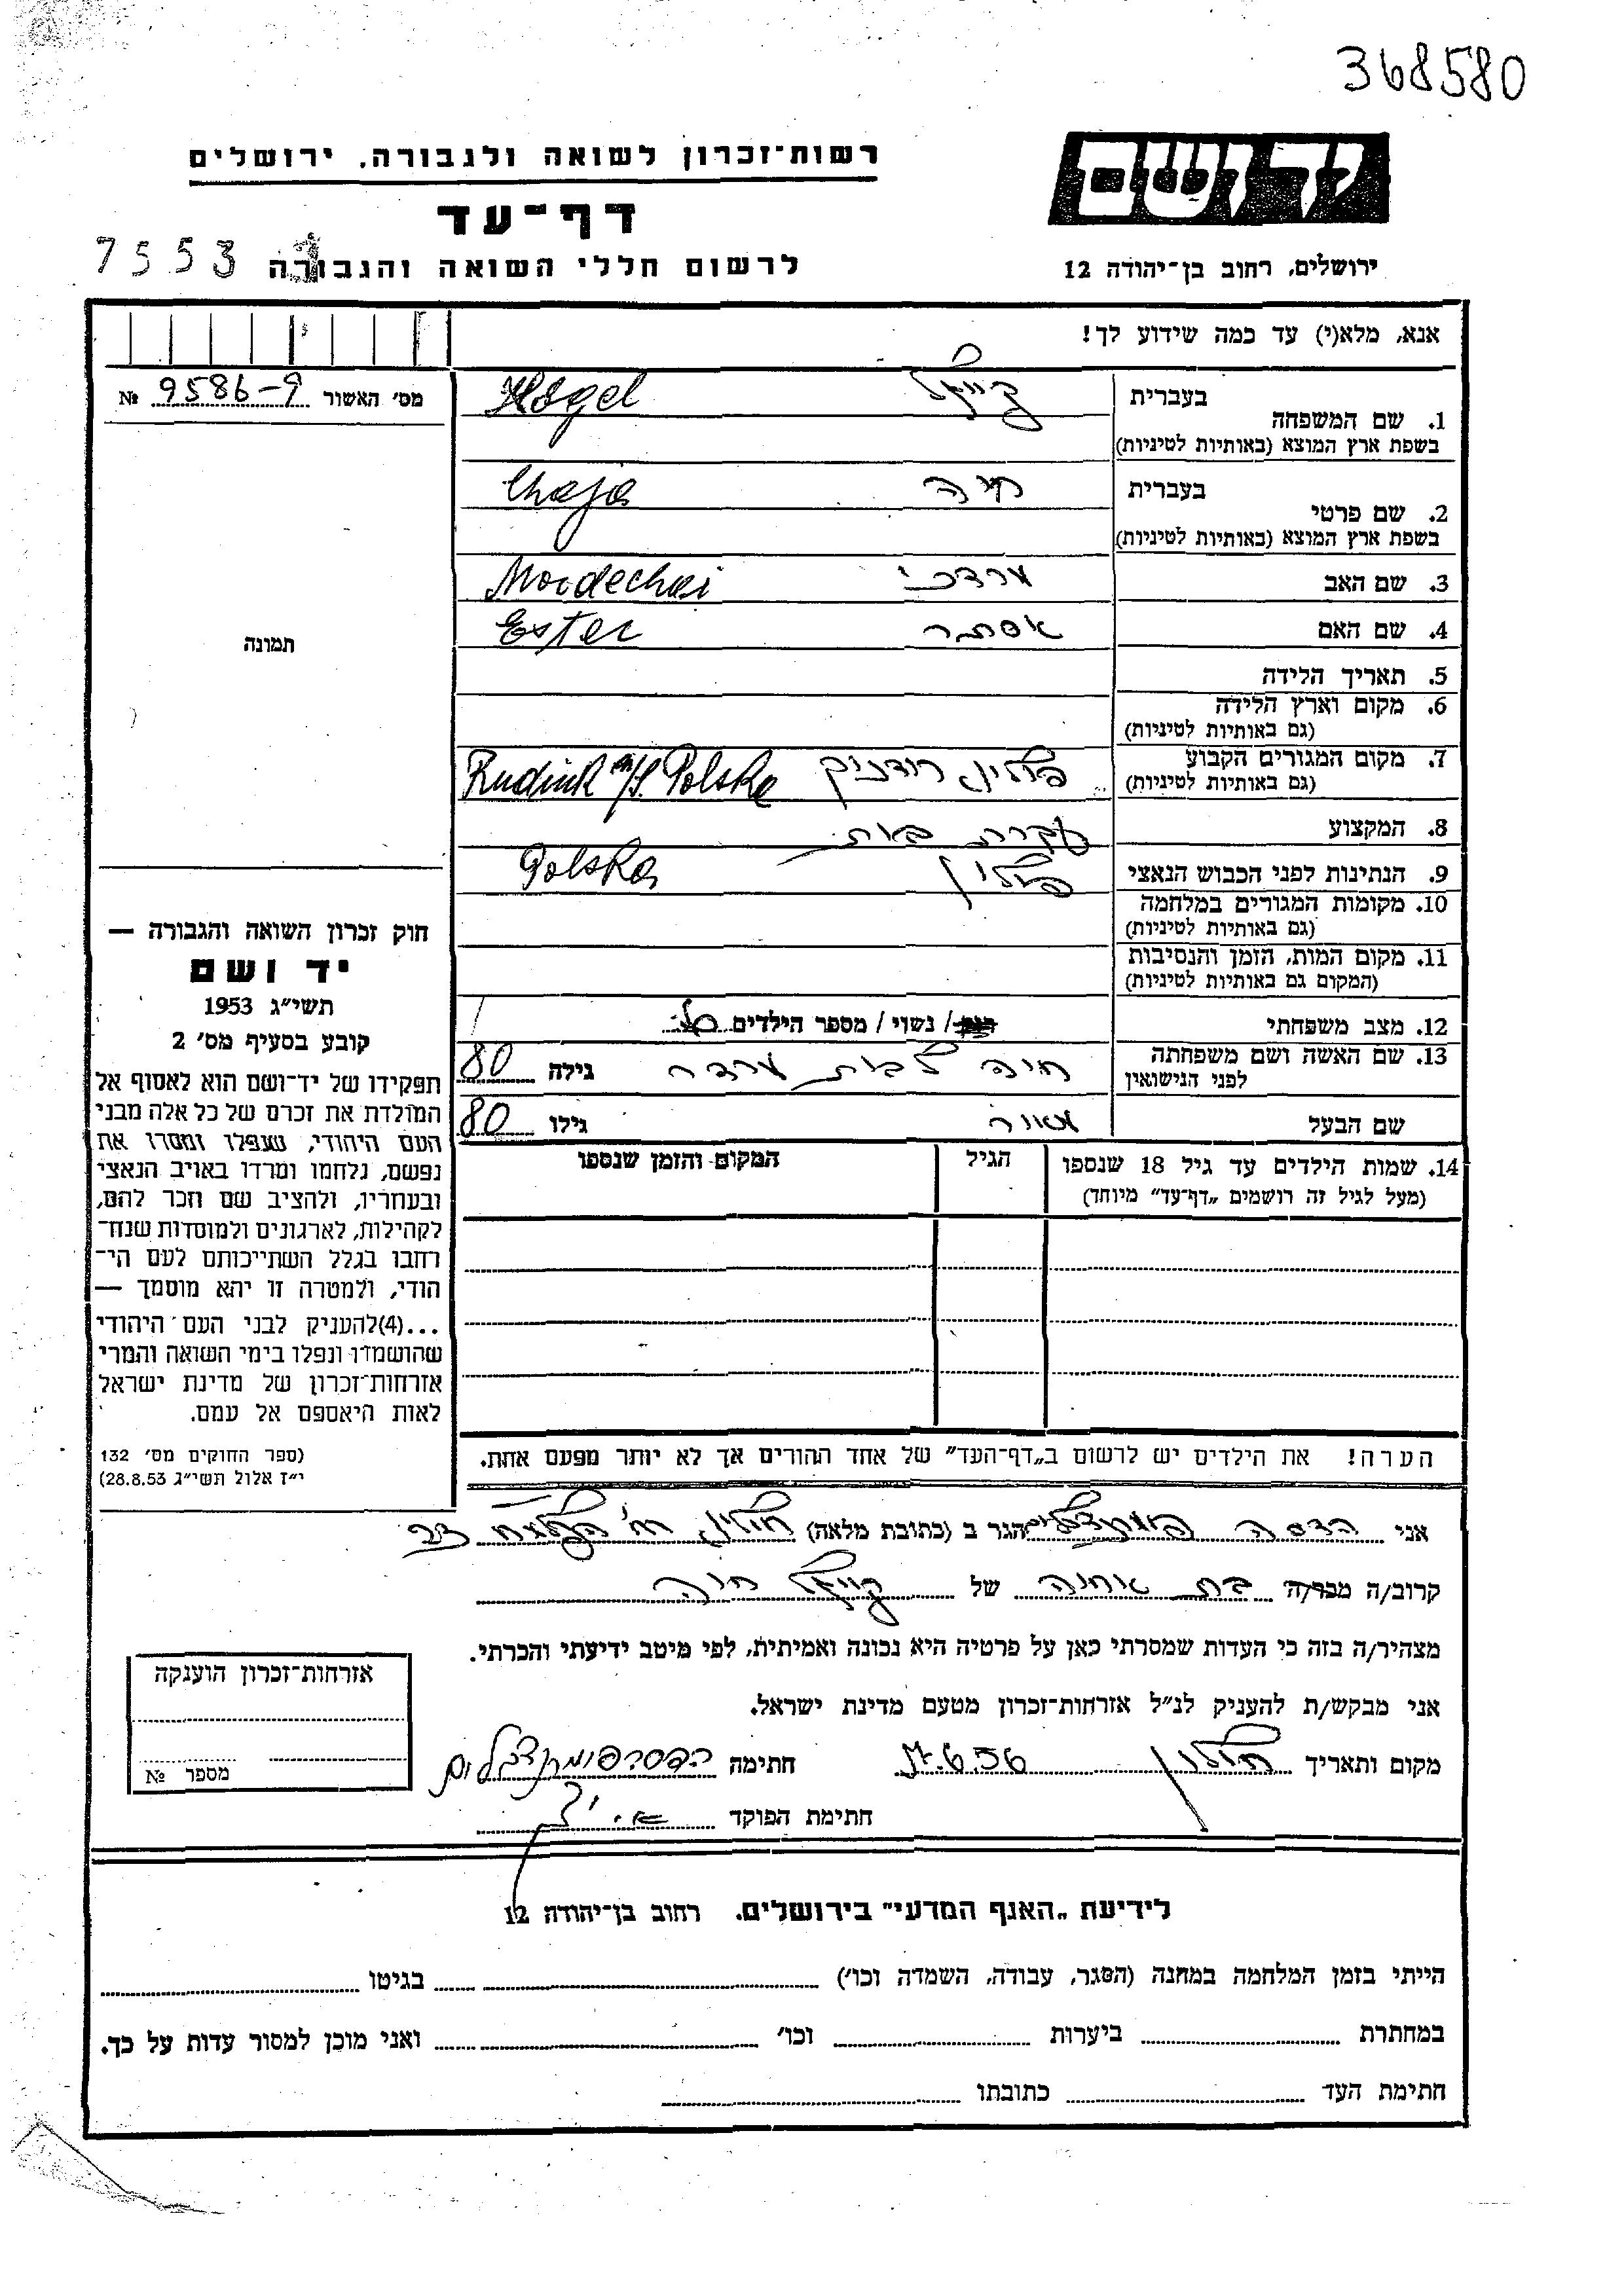 368580
יד ושם
רשות־זכרון לשואה ולגבורה, ירושלים
דף־עד
לרשום חללי השואה והגבורה
7553
ירושלים, רחוב בן־יהודה 12
אנא, מלא(י) עד כמה שידוע לך!
מס׳ האשור 9586-9 №
תמונה
1. שם המשפחה בעברית
בשפת ארץ המוצא (באותיות לטיניות)
2. שם פרטי בעברית חיה Chaja
בשפת ארץ המוצא (באותיות לטיניות)
3. שם האב מרדכי Mordechai
4. שם האם אסתר Ester
5. תאריך הלידה
6. מקום וארץ הלידה
(גם באותיות לטיניות)
7. מקום המגורים הקבוע פולין רודניק Rudink n/S. Polska
(גם באותיות לטיניות)
8. המקצוע עקרת בית
9. הנתינות לפני הכבוש הנאצי פולין Polska
10. מקומות המגורים במלחמה
(גם באותיות לטיניות)
11. מקום המות, הזמן והנסיבות
(המקום גם באותיות לטיניות)
12. מצב משפחתי רווק / נשוי / מספר הילדים
13. שם האשה ושם משפחתה חיה לבית גילה 80
לפני הנישואין
שם הבעל גילו 80
14. שמות הילדים עד גיל 18 שנספו הגיל המקום והזמן שנספו
(מעל לגיל זה רושמים „דף־עד״ מיוחד)
הערה! את הילדים יש לרשום ב„דף־העד״ של אחד ההורים אך לא יותר מפעם אחת.
חוק זכרון השואה והגבורה —
יד ושם
תשי״ג 1953
קובע בסעיף מס׳ 2
תפקידו של יד־ושם הוא לאסוף אל
המולדת את זכרם של כל אלה מבני
העם היהודי, שנפלו ומסרו את
נפשם, נלחמו ומרדו באויב הנאצי
ובעוזריו, ולהציב שם וזכר להם,
לקהילות, לארגונים ולמוסדות שנח־
רבו בגלל השתייכותם לעם הי־
הודי, ולמטרה זו יהא מוסמך —
...(4)להעניק לבני העם היהודי
שהושמדו ונפלו בימי השואה והמרי
אזרחות־זכרון של מדינת ישראל
לאות היאספם אל עמם.
(ספר החוקים מס׳ 132
י״ז אלול תשי״ג 28.8.53)
אני הדסה הגר ב (כתובת מלאה) חולון,
קרוב/ה מכר/ה בת אחיה של חיה
מצהיר/ה בזה כי העדות שמסרתי כאן על פרטיה היא נכונה ואמיתית, לפי מיטב ידיעתי והכרתי.
אני מבקש/ת להעניק לנ״ל אזרחות־זכרון מטעם מדינת ישראל.
מקום ותאריך חולון 6.56 חתימה
חתימת הפוקד
אזרחות־זכרון הוענקה
מספר №
לידיעת „האגף המדעי״ בירושלים. רחוב בן־יהודה 12
הייתי בזמן המלחמה במחנה (הסגר, עבודה, השמדה וכו׳) בגיטו
במחתרת ביערות וכו׳ ואני מוכן למסור עדות על כך.
חתימת העד כתובתו